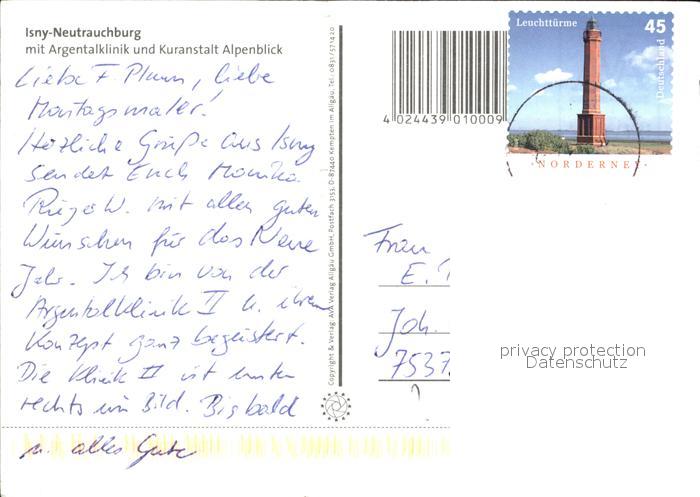 Isny-Neutrauchburg
mit Argentalklinik und Kuranstalt Alpenblick
Liebe F. Plum, liebe
Montagsmaler!
Herzliche Grüße aus Isny
sendet Euch Monika
mit allen guten
Wünschen für das Neue
Jahr. Ich bin von der
Argentalklinik II u. ihrem
Konzept ganz begeistert.
Die Klinik II ist unten
rechts im Bild. Bis bald
u. alles Gute
Copyright & Verlag AVA Verlag Allgäu GmbH, Postfach 3153, D-87440 Kempten im Allgäu, Tel.: 0831/571420
4 024439 010009
Leuchttürme
45
Deutschland
·NORDERNEY·
Frau
E.
Joh.
7537
privacy protection
Datenschutz